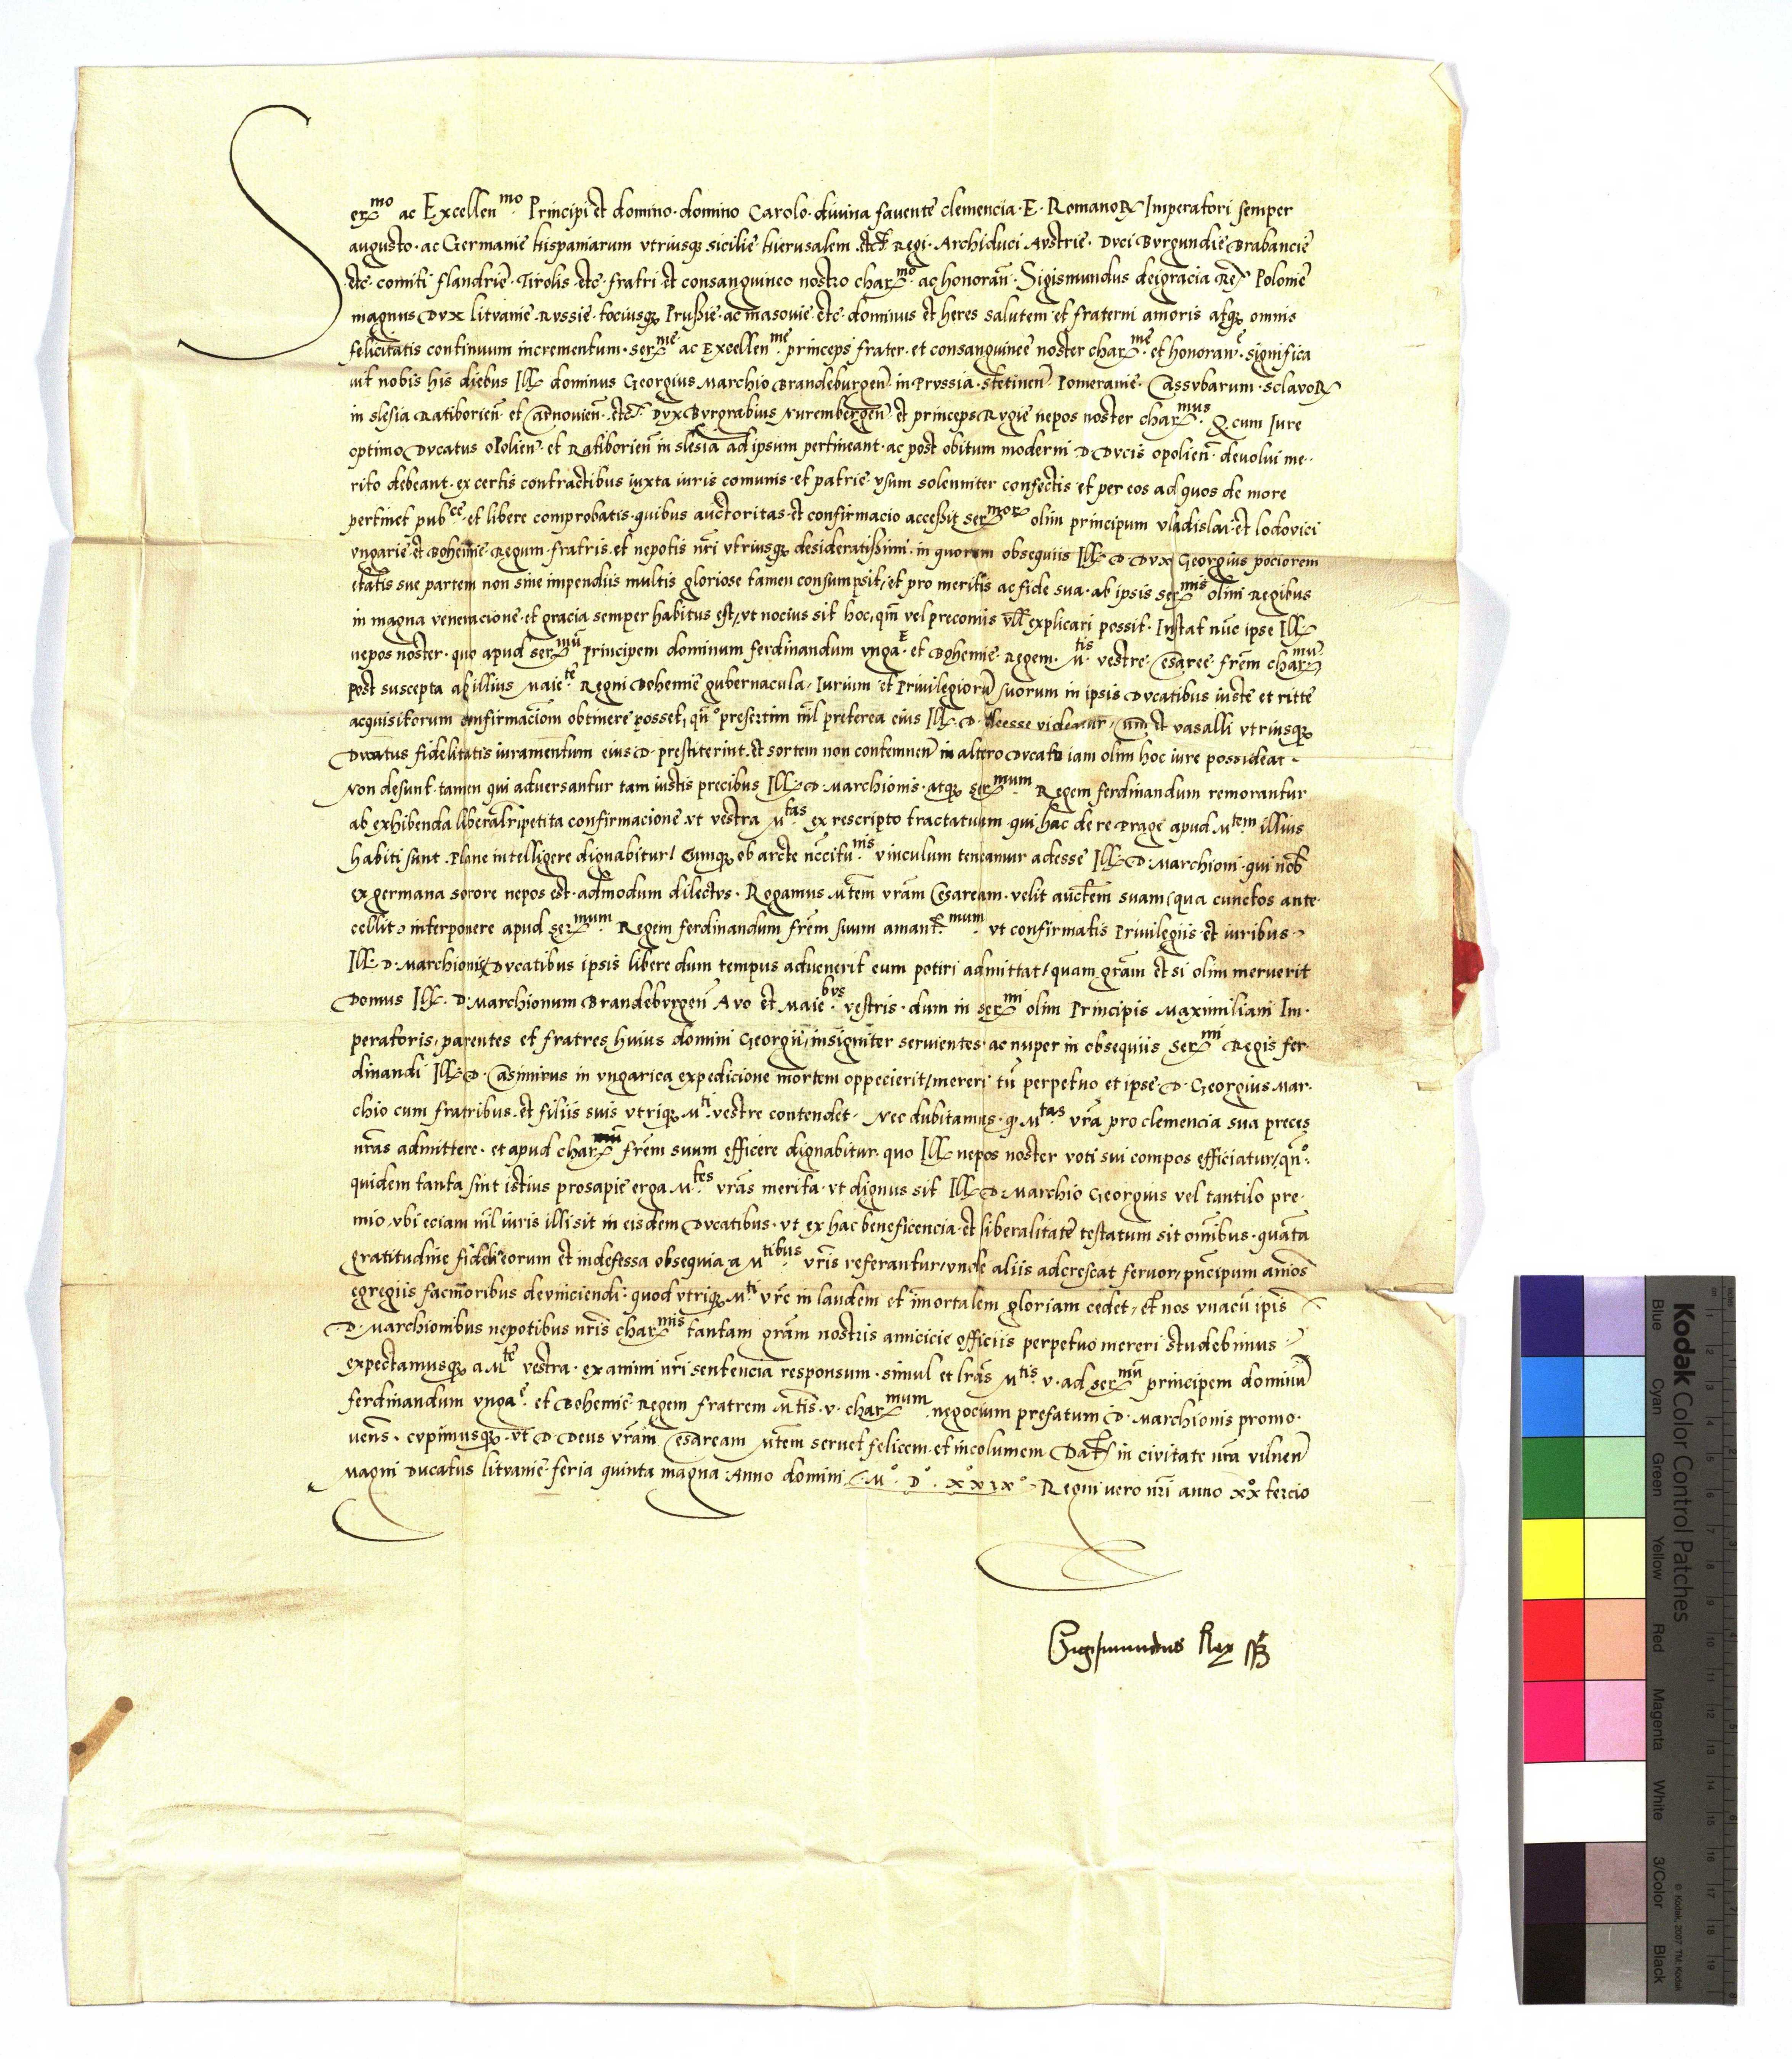 Ser.mo ac Excellen.mo Principi et domino. domino Carolo. divina favente clemencia. E. Romanor Imperatori semper
augusto. ac Germanie hispaniarum utriusq sicilie hierusalem etc Regi. Archiduci Avstrie. Dvci Bvrgundie Brabancie
etc. comiti flandrie. Tirolis etc. fratri et consanguineo nostro char.mo ac honoran. Sigismundus dei gracia Rex Polonie
magnus Dvx litvanie. Rvssie. tociusq Prussie. ac masovie etc. dominus et heres salutem et fraterni amoris atq omnis
felicitatis continuum incrementum. ser.me ac Excellen.me princeps frater. et consanguinee noster char.me et honoran.e significa
vit nobis his diebus Ill dominus Georgius Marchio Brandeburgen. in Prvssia. stetinen. Pomeranie. Cassvbarum. sclavor
in slesia Ratiborien et Carnovien. etc. Dvx Bvrgrabius Nurembergen. et princeps Rvgie nepos noster char.mus Q cum Iure
optimo Dvcatus opolien. et Ratiborien in slesia ad ipsum pertineant. ac post obitum moderni D Dvcis opolien. devolvi me..
rito debeant. ex certis contractibus iuxta iuris comunis et patrie usum solenniter confectis et per eos ad quos de more
pertinet pub.ce et libere comprobatis. quibus auctoritas. et confirmacio accessit ser.mor olim principum vladislai. et lodovici
vngarie. et Bohemie. Regum. fratris. et nepotis nri utriusq desideratissimi. in quorum obsequiis Ill. D Dvx Georgius pociorem
etatis sue partem non sine impendiis multis gloriose tamen consumpsit, et pro meritis ac fide sua. ab ipsis ser.mis olim Regibus
in magna veneracione. et gracia semper habitus est, ut nocius sit hoc, qm vel preconiis ull explicari possit. Instat nuc ipse Ill
nepos noster. quo apud ser.mu principem dominum ferdinandum vnga.e et Bohemie. Regem. M.tis vestre. Cesaree. frem char.mu
post suscepta ab illius Maie.te Regni Bohemie gubernacula, Iurium et Privilegioru suorum in ipsis Dvcatibus iuste et ritte
acquisitorum confirmaciom obtinere posset, qn.o presertim nil preterea eius Ill. D. deesse videatur, cum et vasalli utriusq
Dvcatus fidelitatis iuramentum eius D. prestiterint. et sortem non contemnen in altero Dvcatu iam olim hoc iure possideat -
Non desunt. tamen qui adversantur tam iustis precibus Ill. D. Marchionis. atq ser.mum Regem ferdinandum remorantur
ab exhibenda liberali petita confirmacione ut vestra M.tas ex rescripto tractatuum qui hac de re Prage apud M.tem illius
habiti sunt. Plane intelligere dignabitur, Cumq ob arcte nccitu.nis vinculum teneamur adesse Ill. D. Marchioni. qui nob
ex germana sorore nepos est. admodum dilectvs. Rogamus Mtem vram Cesaream. velit auctem suam (qua cunctos ante.
cellit) interponere apud ser.mum Regem ferdinandum frem suum amant.mum ut confirmatis Privilegiis et iuribus.
Ill. D. Marchionis, Dvcatibus ipsis libere dum tempus advenerit eum potiri admittat, quam gram et si olim meruerit
Domus Ill. D. Marchionum Brandebvrgen Avo et Maie.bvs vestris. dum in ser.mi olim Principis Maximiliani Im.
peratoris, parentes et fratres huius domini Georgii, insigniter servientes. ac nuper in obsequiis ser.mi Regis fer.
dinandi Ill. D. Casimirus in vngarica expedicione mortem oppecierit, mereri tn perpetuo et ipse. D. Georgius Mar.
chio cum fratribus. et filiis suis utriq M.ti vestre contendet. Nec dubitamus. q M.tas vra pro clemencia sua preces
nras admittere. et apud char.mu frem suum efficere dignabitur. quo Ill nepos noster voti sui compos efficiatur, qn.o
quidem tanta sint istius prosapie erga M.tes vras merita. ut dignus sit Ill. D. Marchio Georgius vel tantilo pre.
mio, ubi eciam nil iuris illi sit in eisdem Dvcatibus. ut ex hac beneficencia. et liberalitate testatum sit omibus. quata
gratitudine fidelis eorum et indefessa obsequia a M.tibus vris referantur, unde aliis adcrescat fervor, pncipum amos
egregiis facinoribus devinciendi. quod utriq M.ti vre in laudem et imortalem gloriam cedet, et nos vnacu ipis
D. Marchionibus nepotibus nris char.mis tantam gram nostris amicicie officiis perpetuo mereri studebimus.
expectamusq a M.te vestra. ex animi nri sentencia responsum. simul et lras M.tis v. ad ser.mu principem dominu
ferdinandum vnga.e et Bohemie Regem fratrem Mtis. v. char.mum negocium prefatum D. Marchionis promo.
vens. cvpimusq. ut D. Deus vram Cesaream Mtem servet felicem. et incolumem Dat in civitate nra vilnen
Magni Ducatus litvanie. feria quinta magna. Anno domini. M.o D.o XXIX.o Regni vero nri anno xxo tercio
Sigismundus Rex sst
Kodak Color Control Patches
Blue Cyan Green Yellow Red Magenta White 3/Color Black
© Kodak, 2007 TM: Kodak